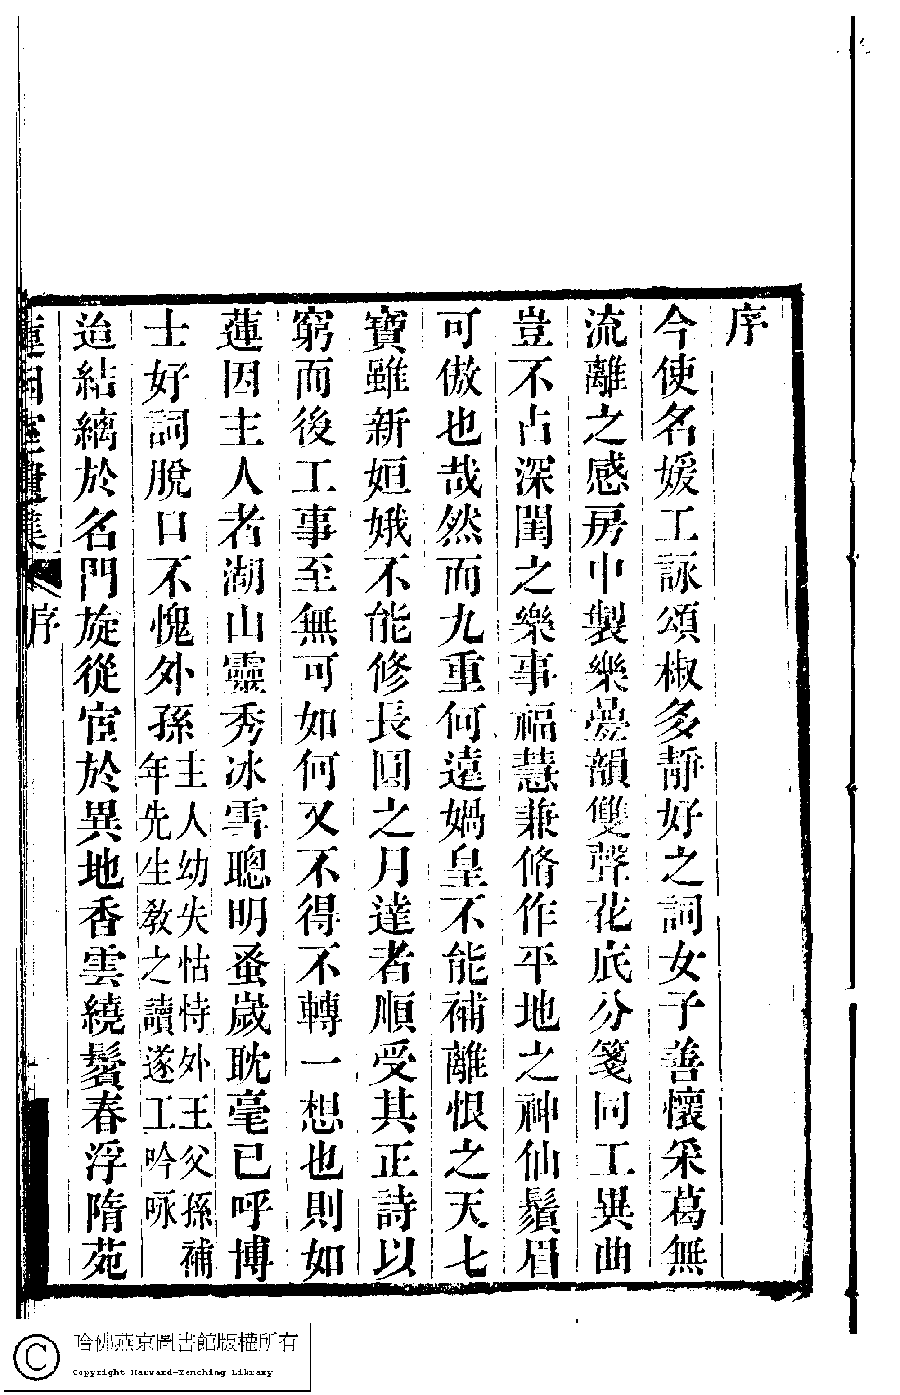 序
今使名媛工詠頌椒多靜好之詞女子善懷采葛無
流離之感房中製樂疊韻雙聲花底分箋同工異曲
豈不占深閨之樂事福慧兼脩作平地之神仙鬚眉
可傲也哉然而九重何遠媧皇不能補離恨之天七
寶雖新姮娥不能修長圓之月達者順受其正詩以
窮而後工事至無可如何又不得不轉一想也則如
蓮因主人者湖山靈秀冰雪聰明蚤歲耽毫已呼博
士好詞脫口不愧外孫主人幼失怙恃外王父孫補年先生教之讀遂工吟咏
迨結縭於名門旋從宦於異地香雲繞鬢春浮隋苑
蓮因室遺集 序
哈佛燕京圖書館版權所有
Copyright Harvard-Yenching Library